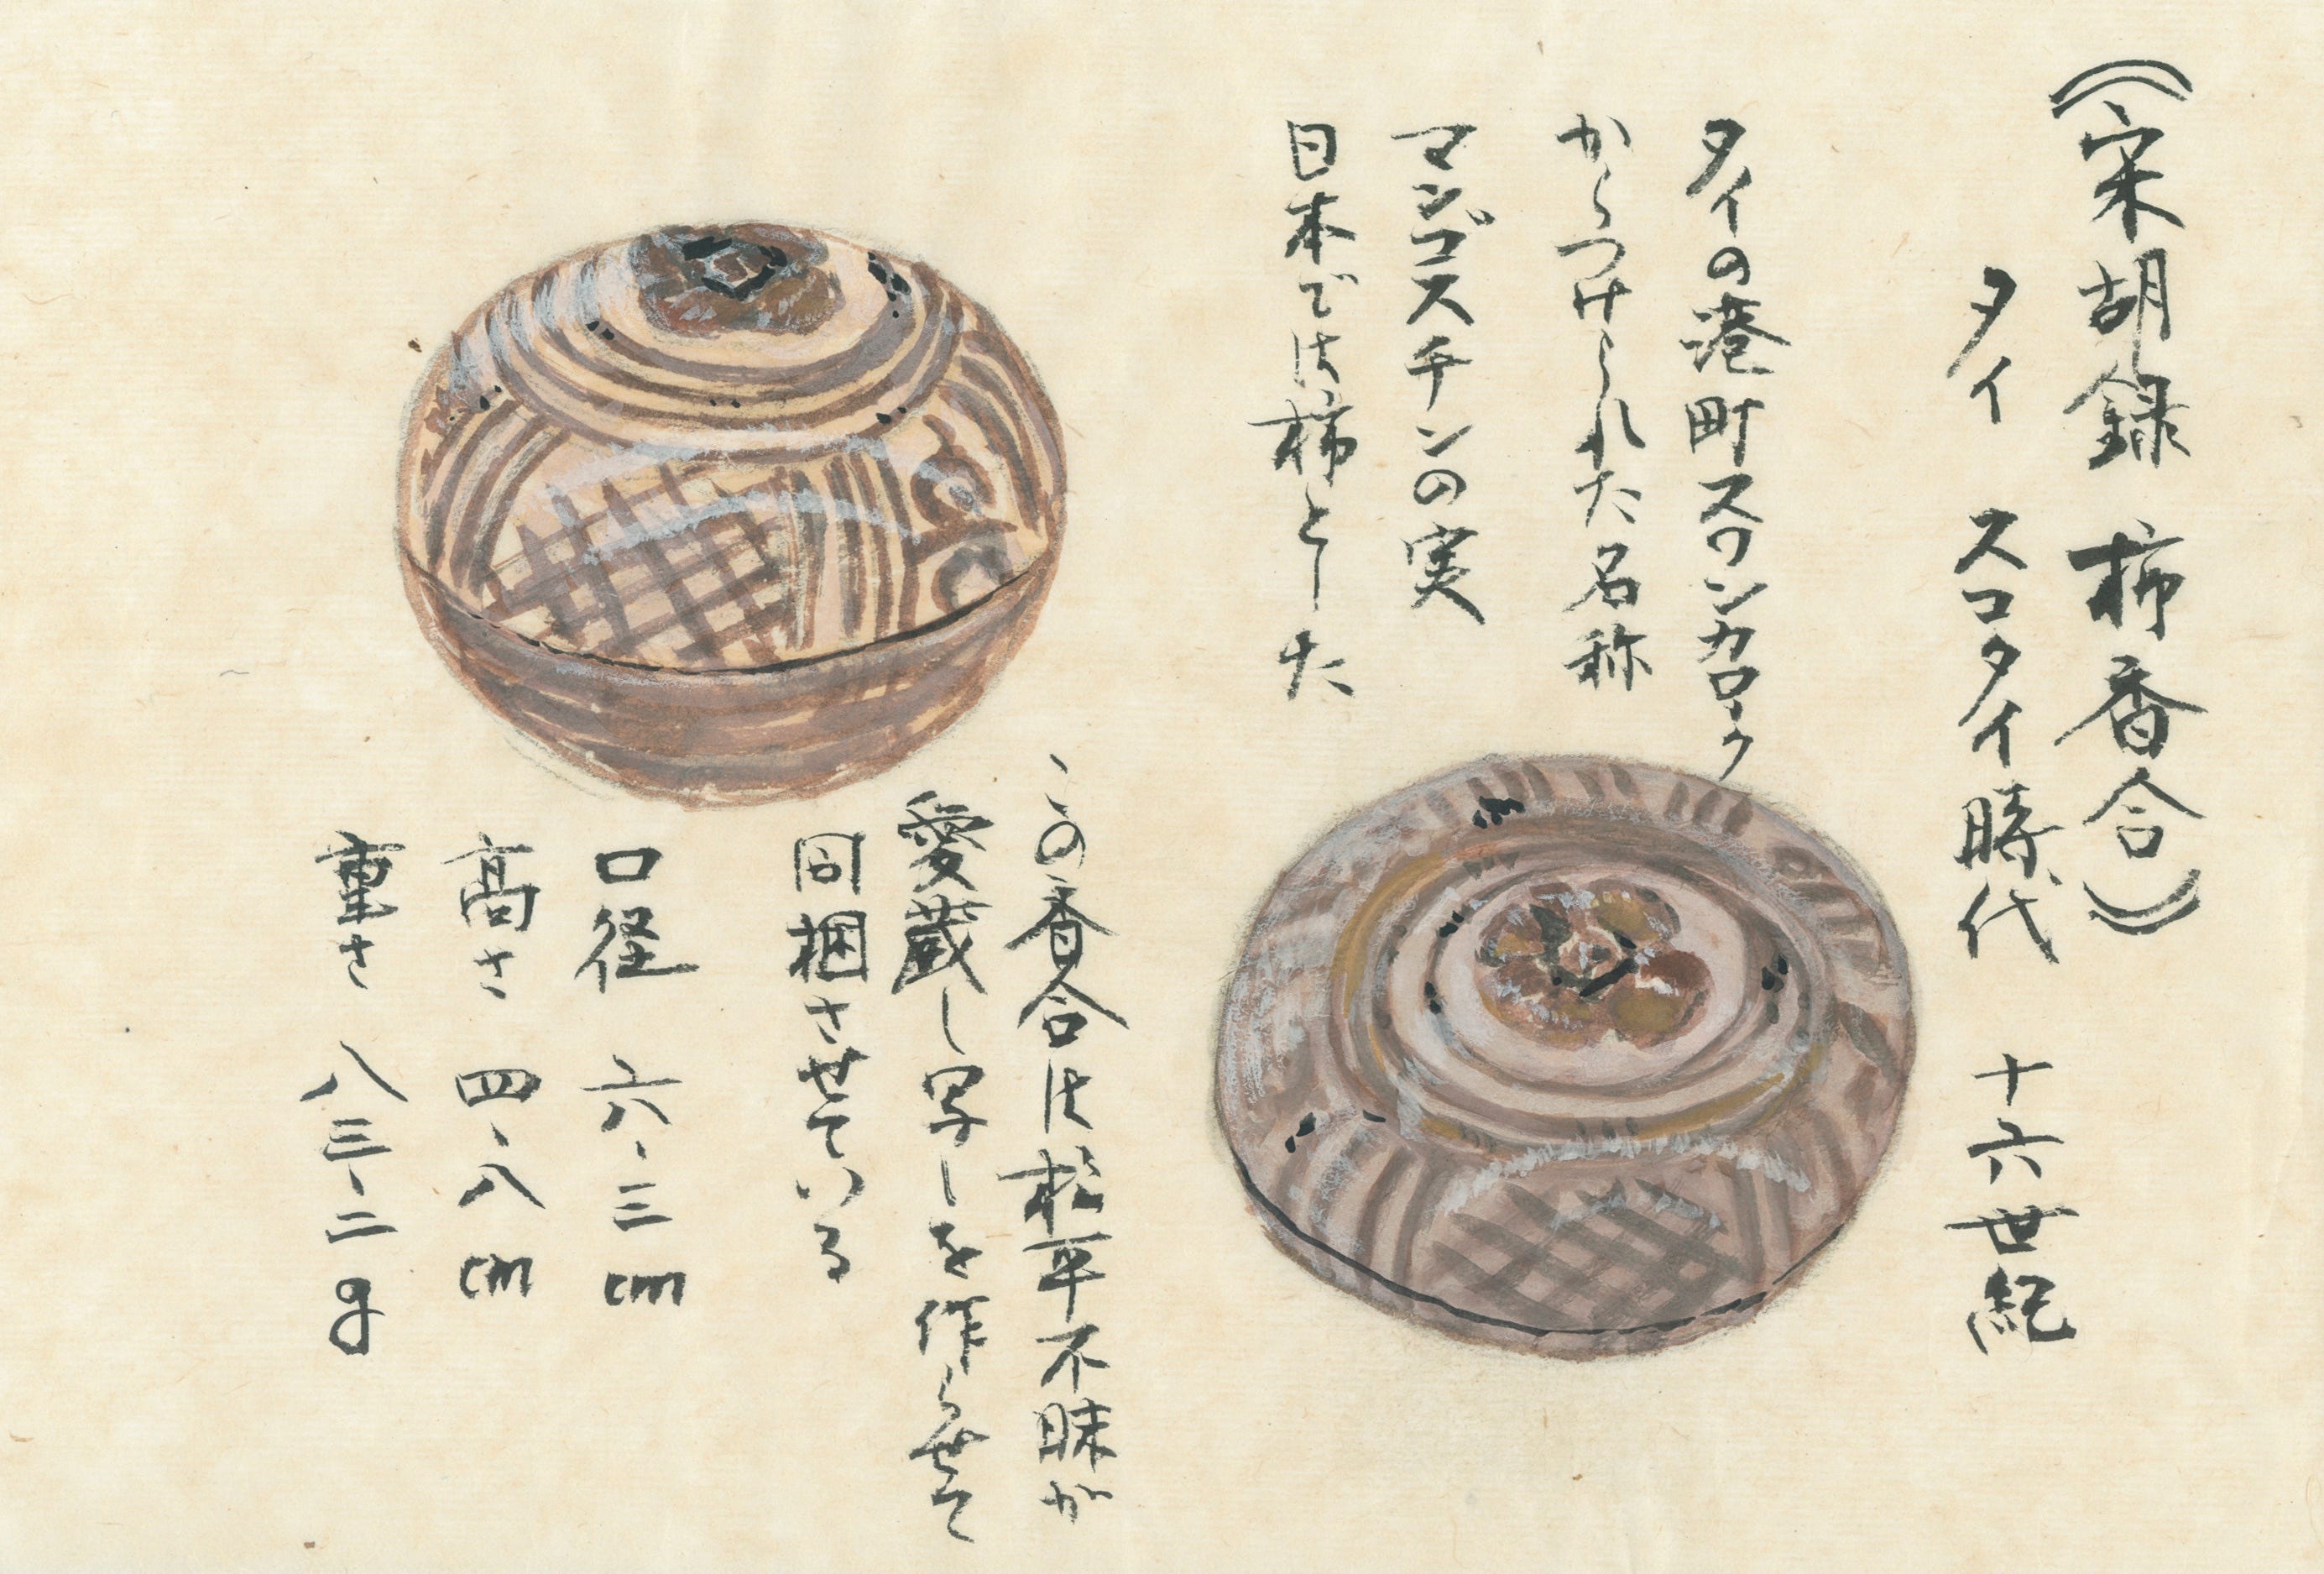 《宋胡録 柿香合》
タイ スコータイ時代 十六世紀
タイの港町スワンカローク
からつけられた名称
マンゴスチンの実
日本では柿とした
この香合は松平不昧が
愛蔵し写しを作らせて
同梱させている
口径 六.三cm
高さ 四.八cm
重さ 八三.二g